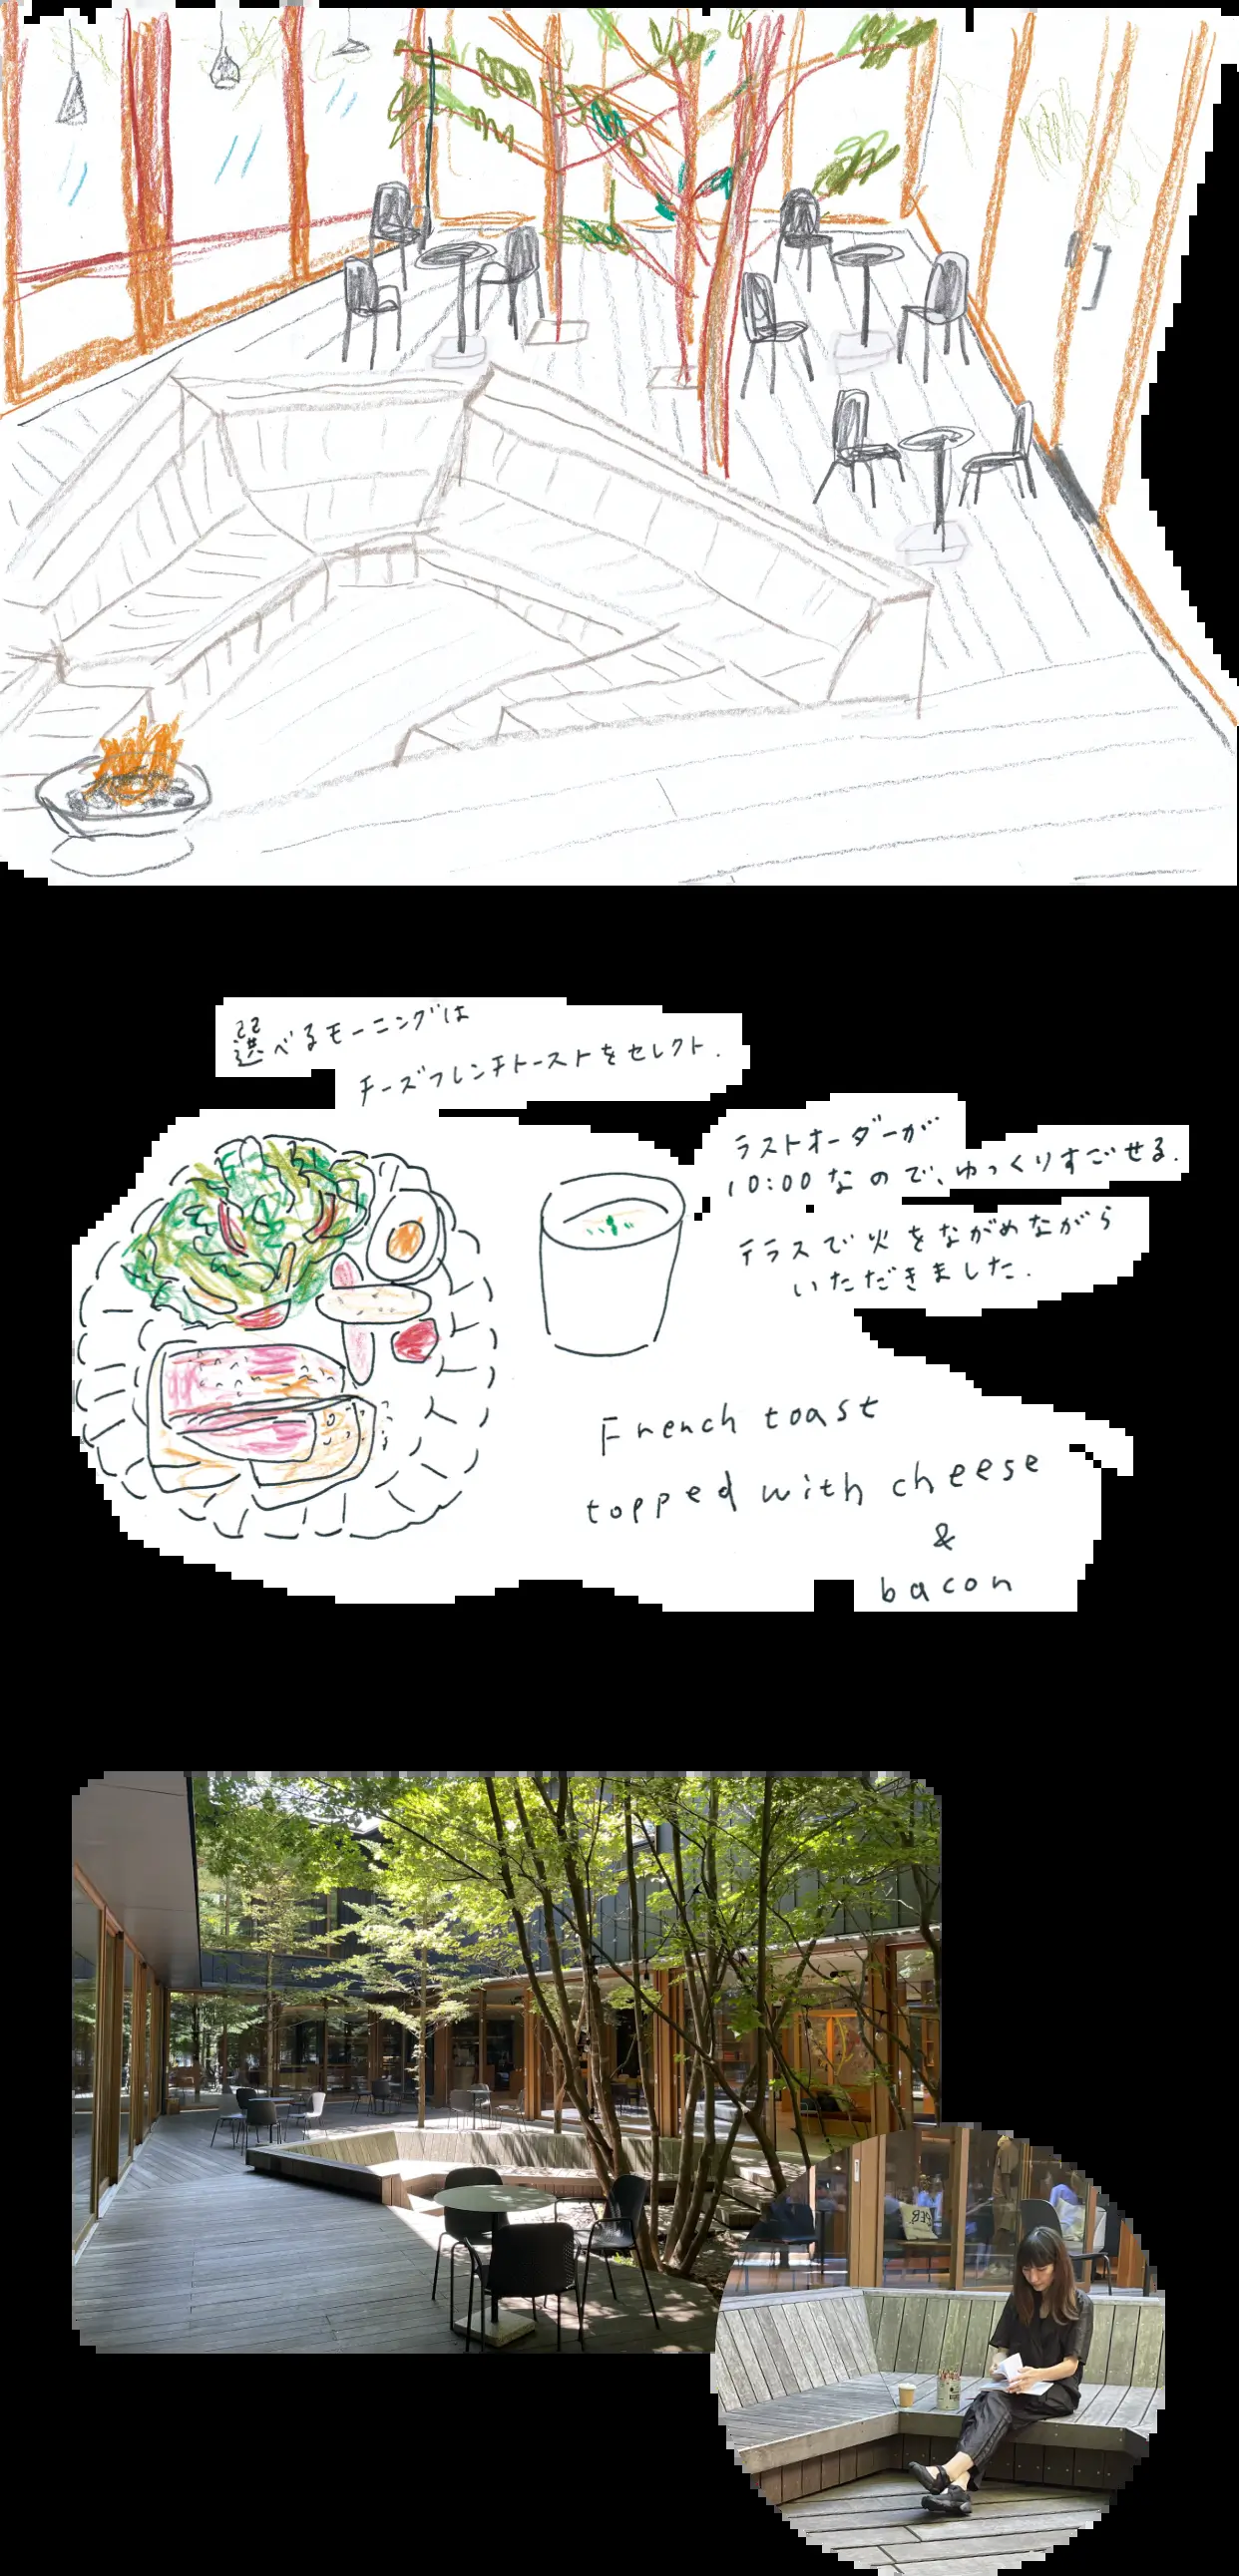 選べるモーニングは
チーズフレンチトーストをセレクト.
ラストオーダーが
10:00なので、ゆっくりすごせる.
テラスで火をながめながら
いただきました.
French toast
topped with cheese
&
bacon